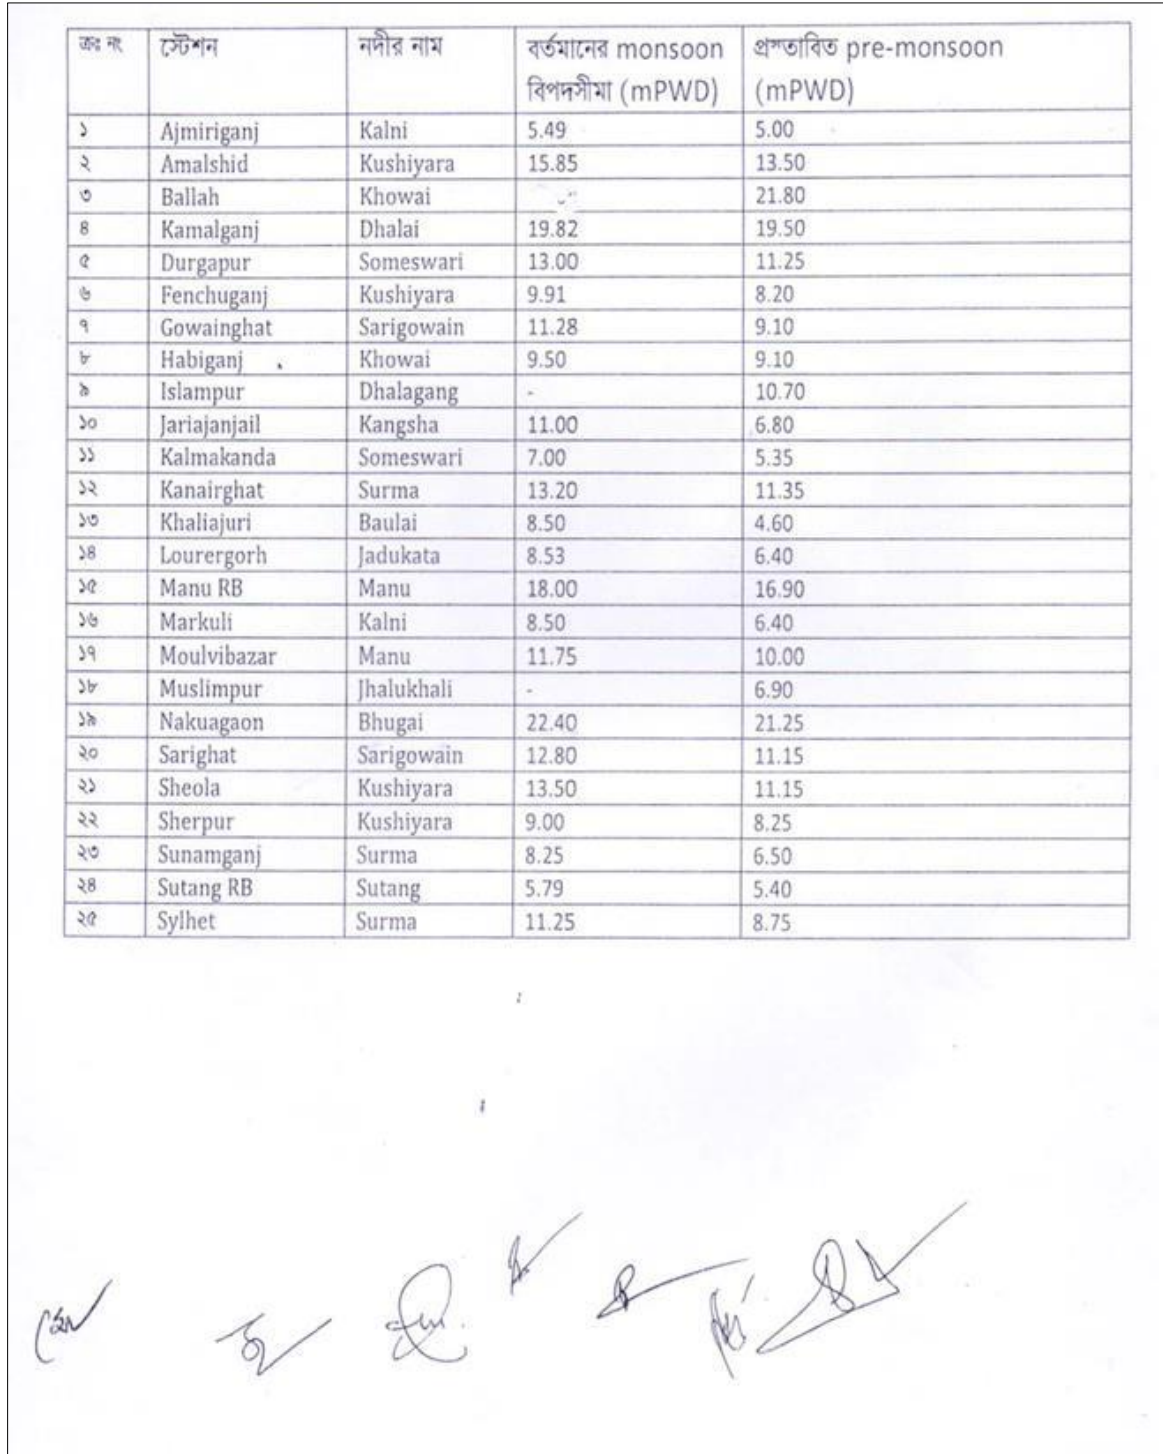 ক্রঃ নং স্টেশন নদীর নাম বর্তমানের monsoon প্রস্তাবিত pre-monsoon
বিপদসীমা (mPWD) (mPWD)
১ Ajmiriganj Kalni 5.49 5.00
২ Amalshid Kushiyara 15.85 13.50
৩ Ballah Khowai 21.80
৪ Kamalganj Dhalai 19.82 19.50
৫ Durgapur Someswari 13.00 11.25
৬ Fenchuganj Kushiyara 9.91 8.20
৭ Gowainghat Sarigowain 11.28 9.10
৮ Habiganj Khowai 9.50 9.10
৯ Islampur Dhalagang - 10.70
১০ Jariajanjail Kangsha 11.00 6.80
১১ Kalmakanda Someswari 7.00 5.35
১২ Kanairghat Surma 13.20 11.35
১৩ Khaliajuri Baulai 8.50 4.60
১৪ Lourergorh Jadukata 8.53 6.40
১৫ Manu RB Manu 18.00 16.90
১৬ Markuli Kalni 8.50 6.40
১৭ Moulvibazar Manu 11.75 10.00
১৮ Muslimpur Jhalukhali - 6.90
১৯ Nakuagaon Bhugai 22.40 21.25
২০ Sarighat Sarigowain 12.80 11.15
২১ Sheola Kushiyara 13.50 11.15
২২ Sherpur Kushiyara 9.00 8.25
২৩ Sunamganj Surma 8.25 6.50
২৪ Sutang RB Sutang 5.79 5.40
২৫ Sylhet Surma 11.25 8.75